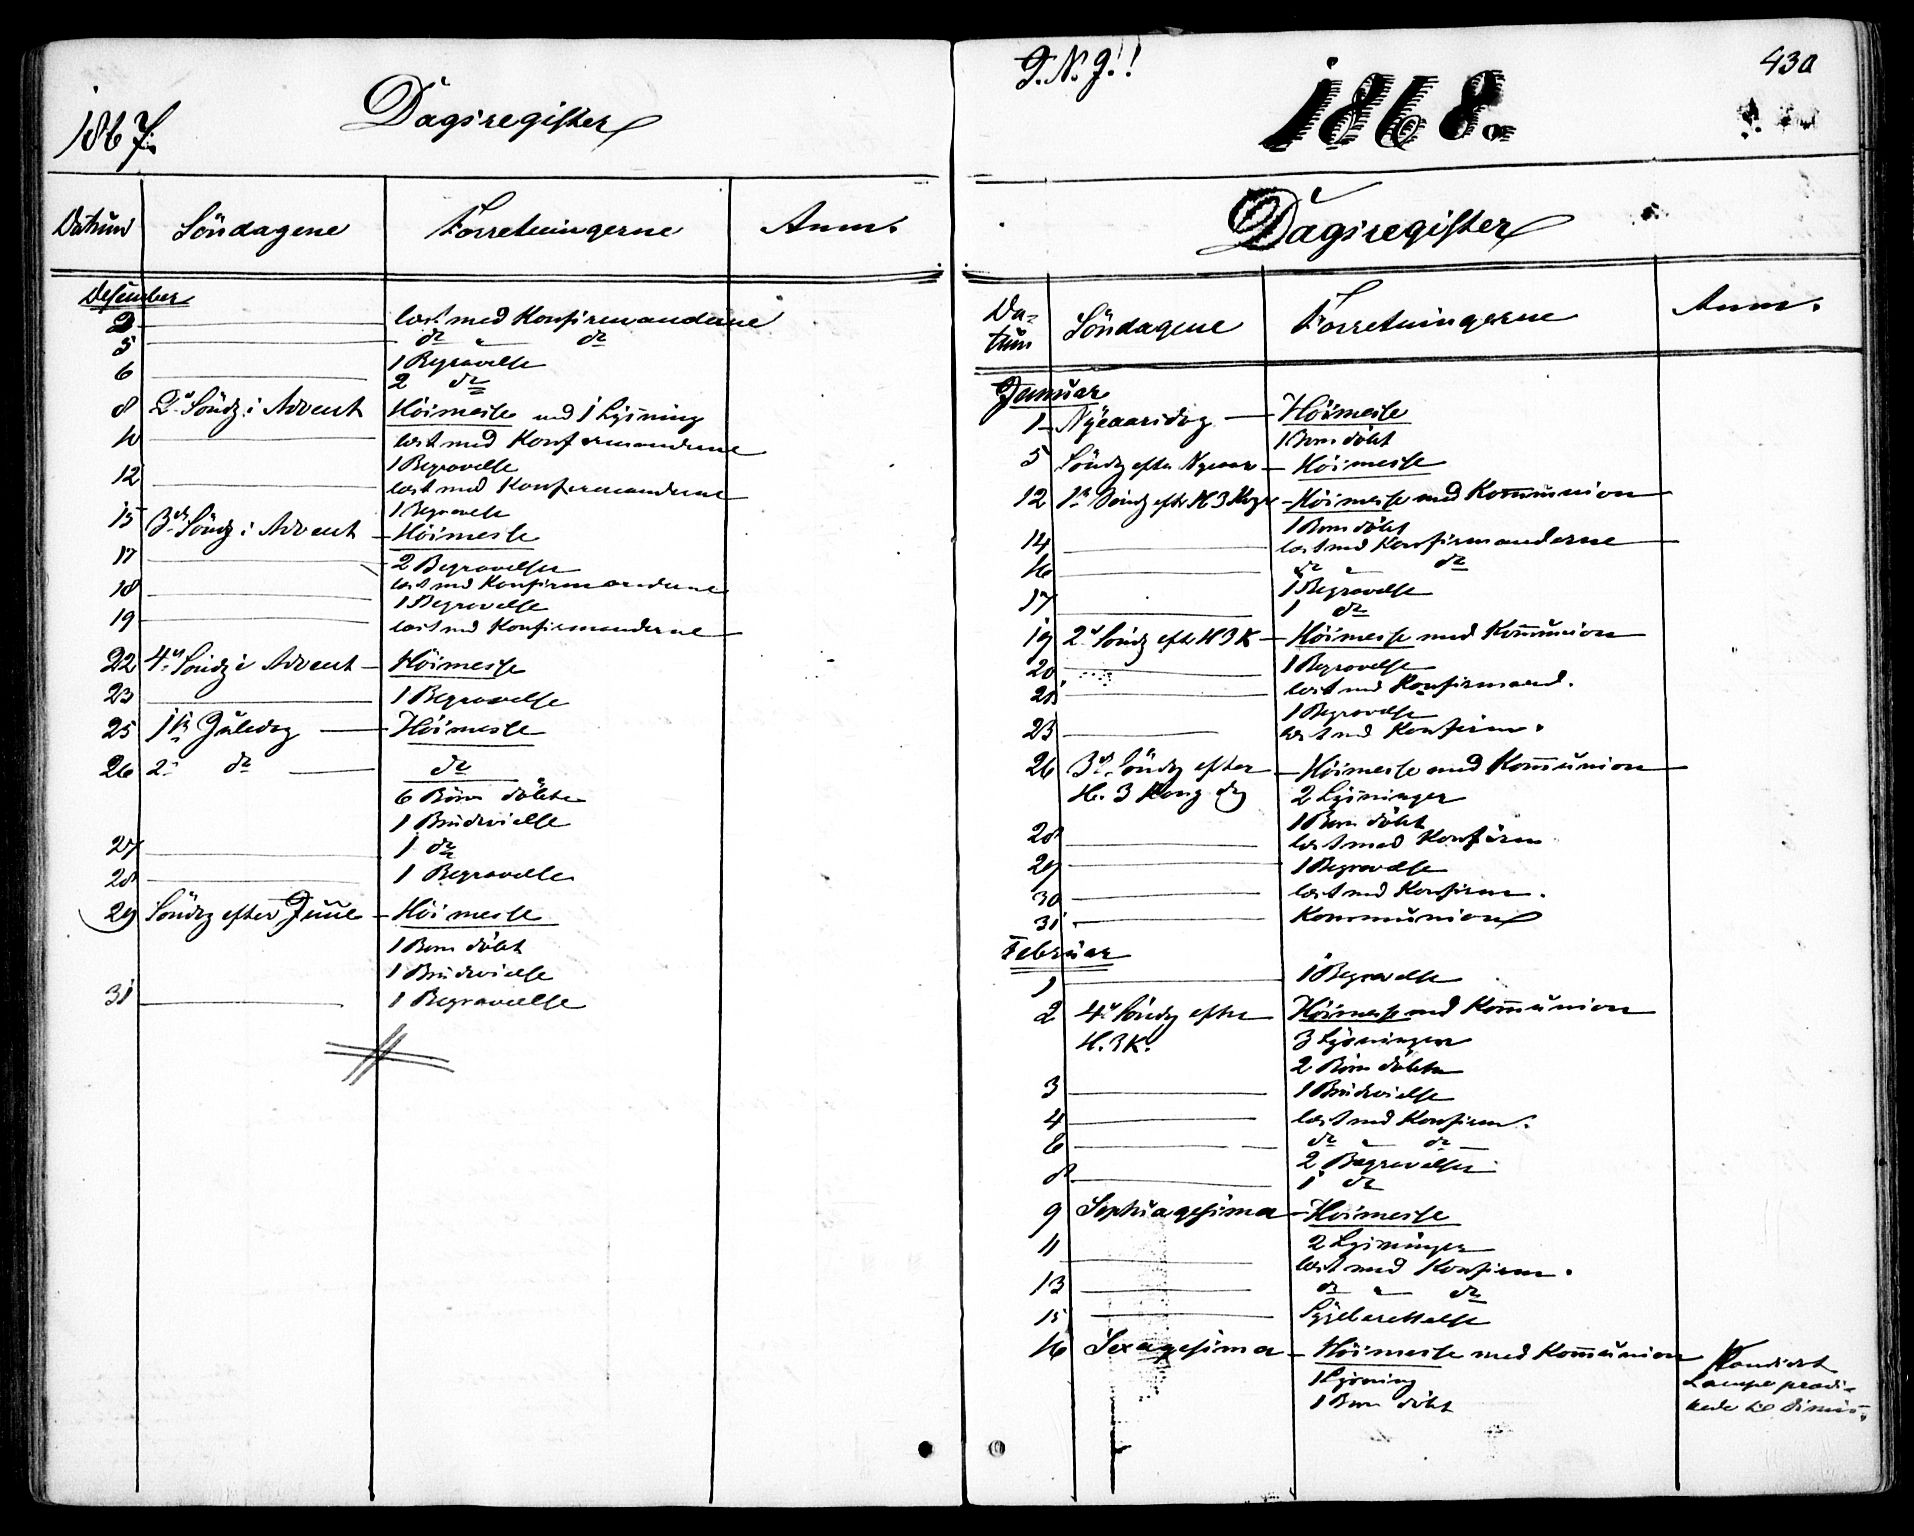 1867.
Dagsregister
Datum Söndagene Forretningerne Anm.
Desember
3 læst med Konfirmanderne
5 do " do
6 1 Begravelse
2 do
8 2d Söndg i Advent Höimesse med 1 Lysning
10 læst med Konfirmanderne
1 Begravelse
12 læst med Konfirmanderne
1 Begravelse
15 3de Söndg i Advent Höimesse
17 2 Begravelser
læst med Konfirmanderne
18 1 Begravelse
19 læst med Konfirmanderne
22 4de Söndg i Advent Höimesse
23 1 Begravelse
25 1ste Juledag Höimesse
26 2n do do
6 Börn döbte
1 Brudevielse
27 1 do
28 1 Begravelse
29 Söndg efter Juul Höimesse
1 Barn döbt
1 Brudevielse
31 1 Begravelse
I. N. J.!
430
1868.
Dagsregister
Da-
tum Söndagene Forretningerne Anm.
Januar
1 Nÿeaarsdag Höimesse
1 Barn döbt
5 Söndg efter Nyeaar Höimesse
12 1ste Söndg efter H 3 Kger Höimesse med Kommunion
1 Barn döbt
14 læst med Konfirmanderne
16 do " do
1 Begravelse
17 1 do
19 2d Söndg efter H 3 K Höimesse med Kommunion
20 1 Begravelse
21 læst med Konfirmand.
1 Begravelse
23 læst med Konfirm.
26 3de Söndg efter Höimesse med Kommunion
H. 3 Kong dg 2 Lysninger
1 Barn döbt
28 læst med Konfirm
29 1 Begravelse
30 læst med Konfirm.
31 Kommunion
Februar
1 1 Begravelse
2 4d Söndg efter Höimesse med Kommunion
H. 3 K. 3 Lysninger
2 Börn döbte
3 1 Brudevielse
4 læst med Konfirm.
6 do " do
2 Begravelser
8 1 do
9 Septuagesima Höimesse
2 Lysninger
11 læst med Konfirm.
13 do " do
15 Sygeberettelse
16 Sexagesima Höimesse med Kommunion Kandidat
1 Lysning Lampe prædi-
1 Barn döbt kede til Dimis.